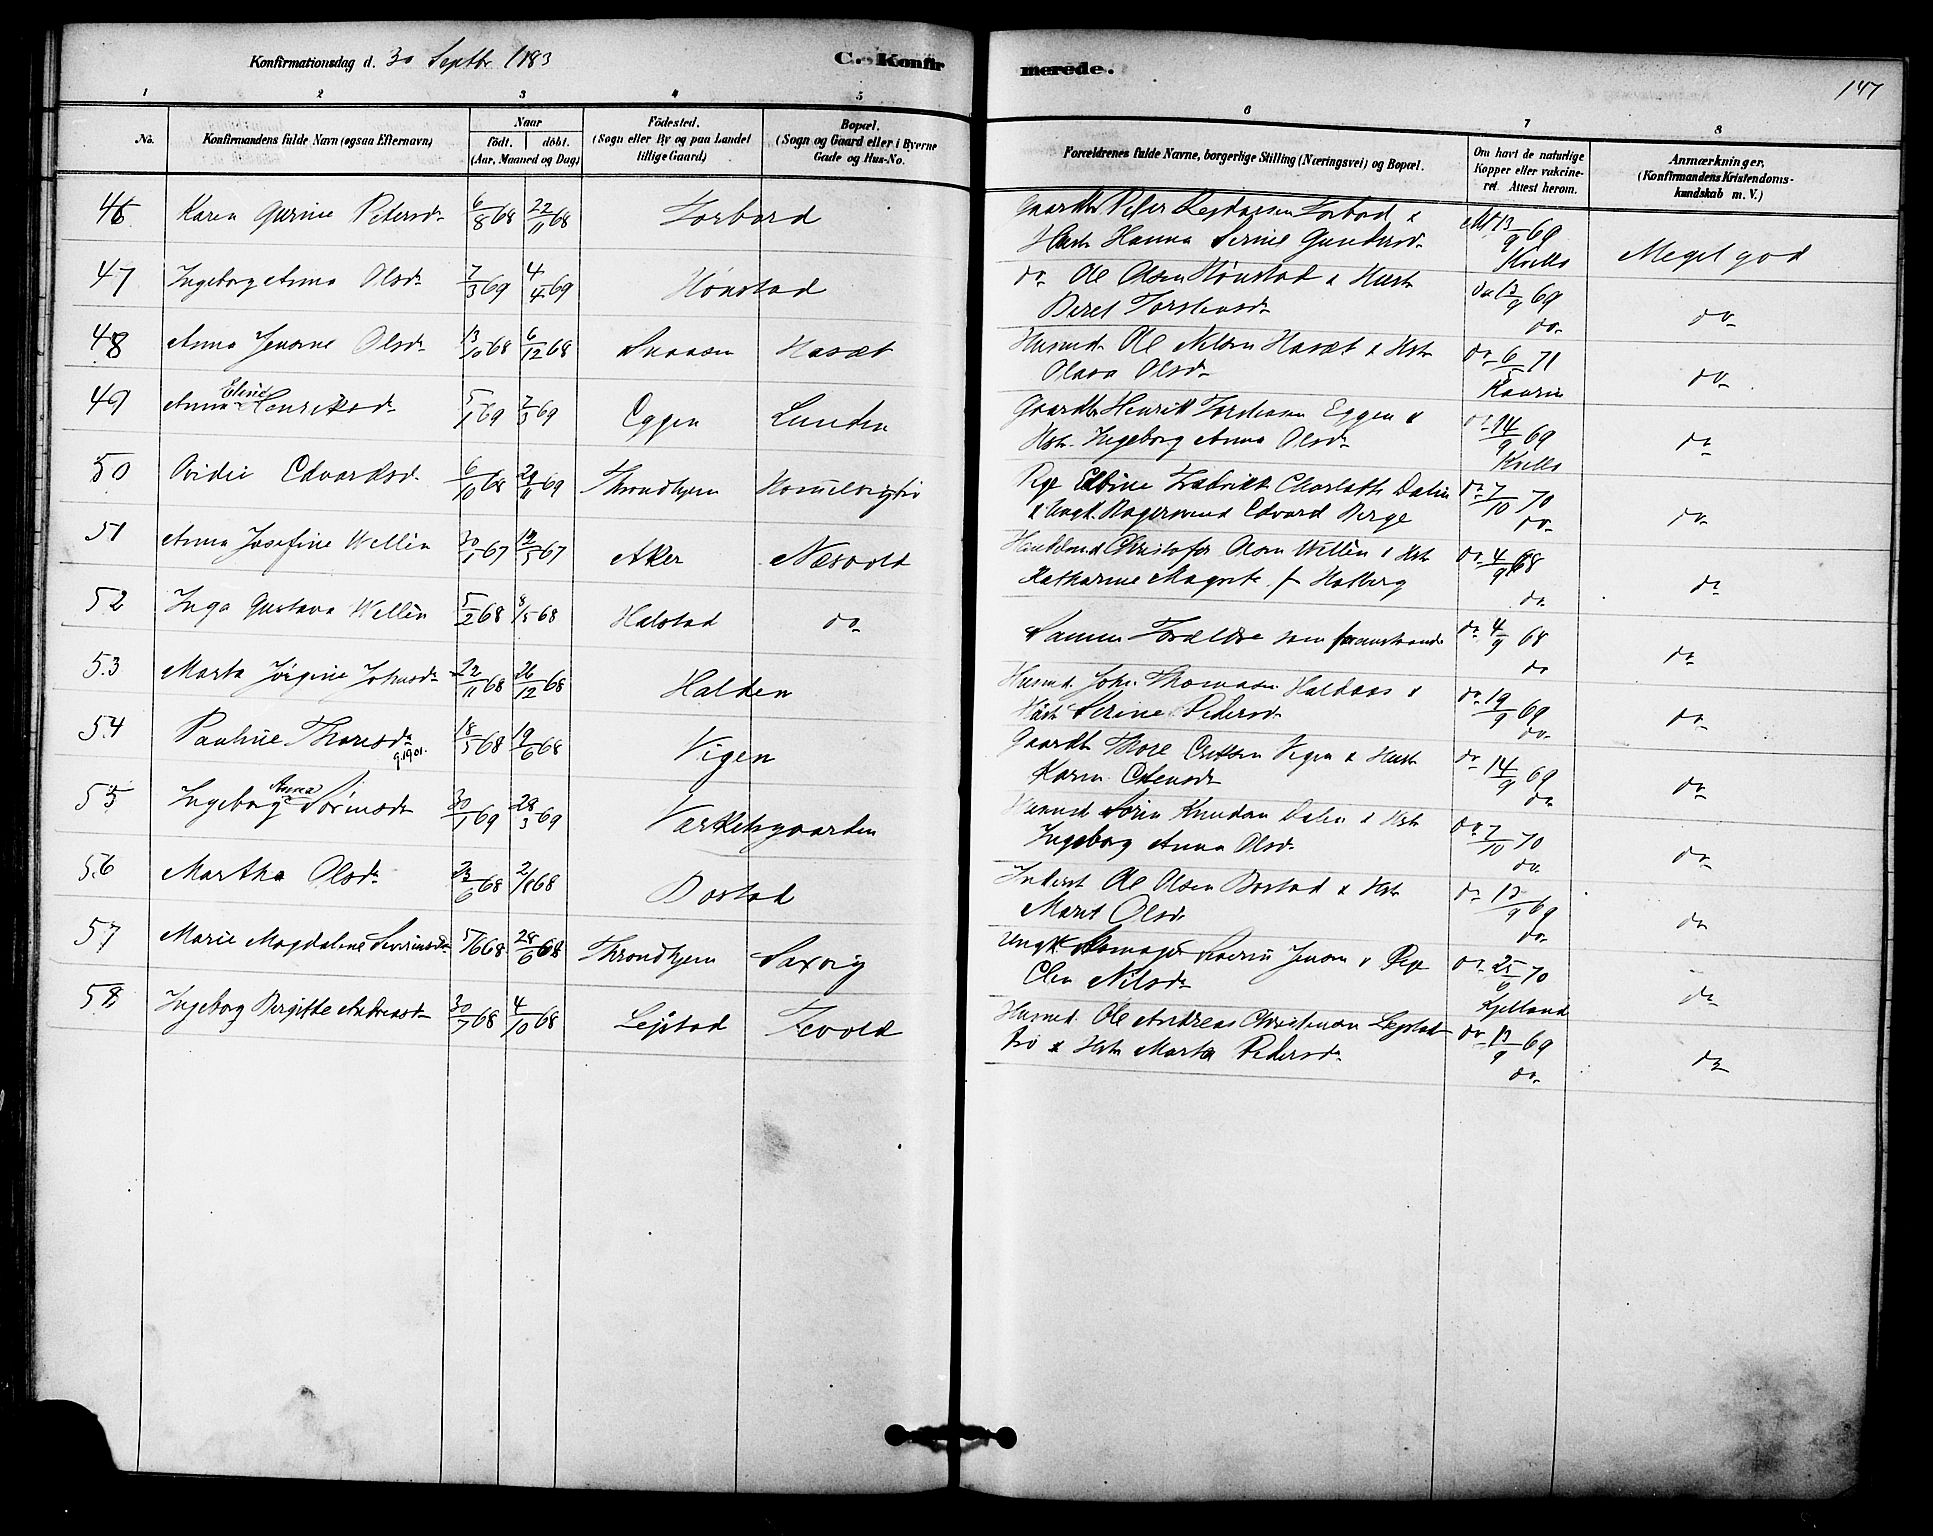 Konfirmationsdag d. 30 Septbr 1883
C. Konfirmerede.
147
1 2 3 4 5 6 7 8
No.
Konfirmandens fulde Navn (ogsaa Efternavn)
Naar
födt. döbt.
(Aar, Maaned og Dag)
Födested.
(Sogn eller By og paa Landet
tillige Gaard)
Bopæl.
(Sogn og Gaard eller i Byerne
Gade og Hus-No.
Forældrenes fulde Navne, borgerlige Stilling (Næringsvei) og Bopæl.
Om havt de naturlige
Kopper eller vakcine-
ret. Attest herom.
Anmærkninger.
(Konfirmandens Kristendoms-
kundskab m. V.)
46 Karen Gurine Petersdr 6/8 68 22/11 68 Forbord
Gaardbr Peter Forbord &
Hust Hanna Serine Gundersdr
Att 13/9 69
Kvello
Meget god
47 Ingeborg Anna Olsdr 7/3 69 4/4 69 Hönstad
do Ole Olsen Hönstad & Hust
Beret Torstensdr
do 13/9 69
do
do
48 Anna Jenorne Olsdr 13/10 68 6/12 68 Snaasen Hasæt
Husmd. Ole Nilsen Hasæt & Hstr
Olava Olsdr
do 6/5 71
do
49 Anna Elesie Henriksdr 5/1 69 7/3 69 Eggen Lunden
Gaardbr Henrik Torstensen Eggen &
Hstr. Ingeborg Anna Olsdr
do 14/9 69
Kvello
do
50 Ovidie Edvardsdr 6/10 68 29/11 69 Throndhjem
Pige Elbine Fredrikke Charlotte Dalin
& Ungk. Bagersvend Edvard Berge
do 7/10 70
do
do
51 Anna Josefine Wellèn 30/1 67 12/5 67 Aker Næsvold
Handelsmd Christofer Olsen Wellèn & Hstr
Katharine Magrete f. Holberg
do 4/9 68
do
do
52 Inga Gustava Wellèn 5/2 68 8/5 68 Halstad do
Samme Forældre som foranstaaende
do 4/9 68
do
do
53 Marta Jörgine Johnsdr 22/11 68 26/12 68 Halden
Husmd. John Thomasen Haldaas &
Hust Serine Pedersdr
do 19/9 69
do
do
54 Pauline Thoresdr 18/5 68 19/6 68 Vigen
g. 1901.
Gaardbr Thore Ellefsen Vigen & Hust
Karen Estensdr
do 14/9 69
do
do
55 Ingeborg Anna Sörensdr 30/1 69 28/3 69 Værketsgaarden
Husmd Sören Knudsen Dalen & Hstr
Ingeborg Anna Olsdr
do 7/10 70
do
do
56 Martha Olsdr 23/6 68 2/8 68 Bostad
Inderst Ole Olsen Bostad & Hstr
Marit Olsdr
do 13/9 69
do
do
57 Marie Magdalene Severinsdr 5/6 68 28/6 68 Throndhjem Saxvig
Ungk. Skomager Severin Jensen & Pige
Elen Nilsdr
do 25/6 70
Kjelland
do
58 Ingeborg Bergitte Andreasdr 30/7 68 4/10 68 Lejstad Fevold
Husmd. Ole Andreas Christensen Lejstad
& Hstr Marta Pedersdr
do 13/9 69
do
do